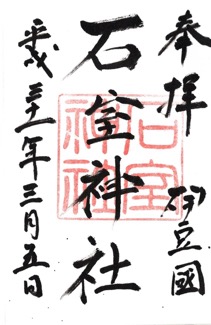 奉拝
伊豆國
石室神社
石室神社
平成三十一年三月五日